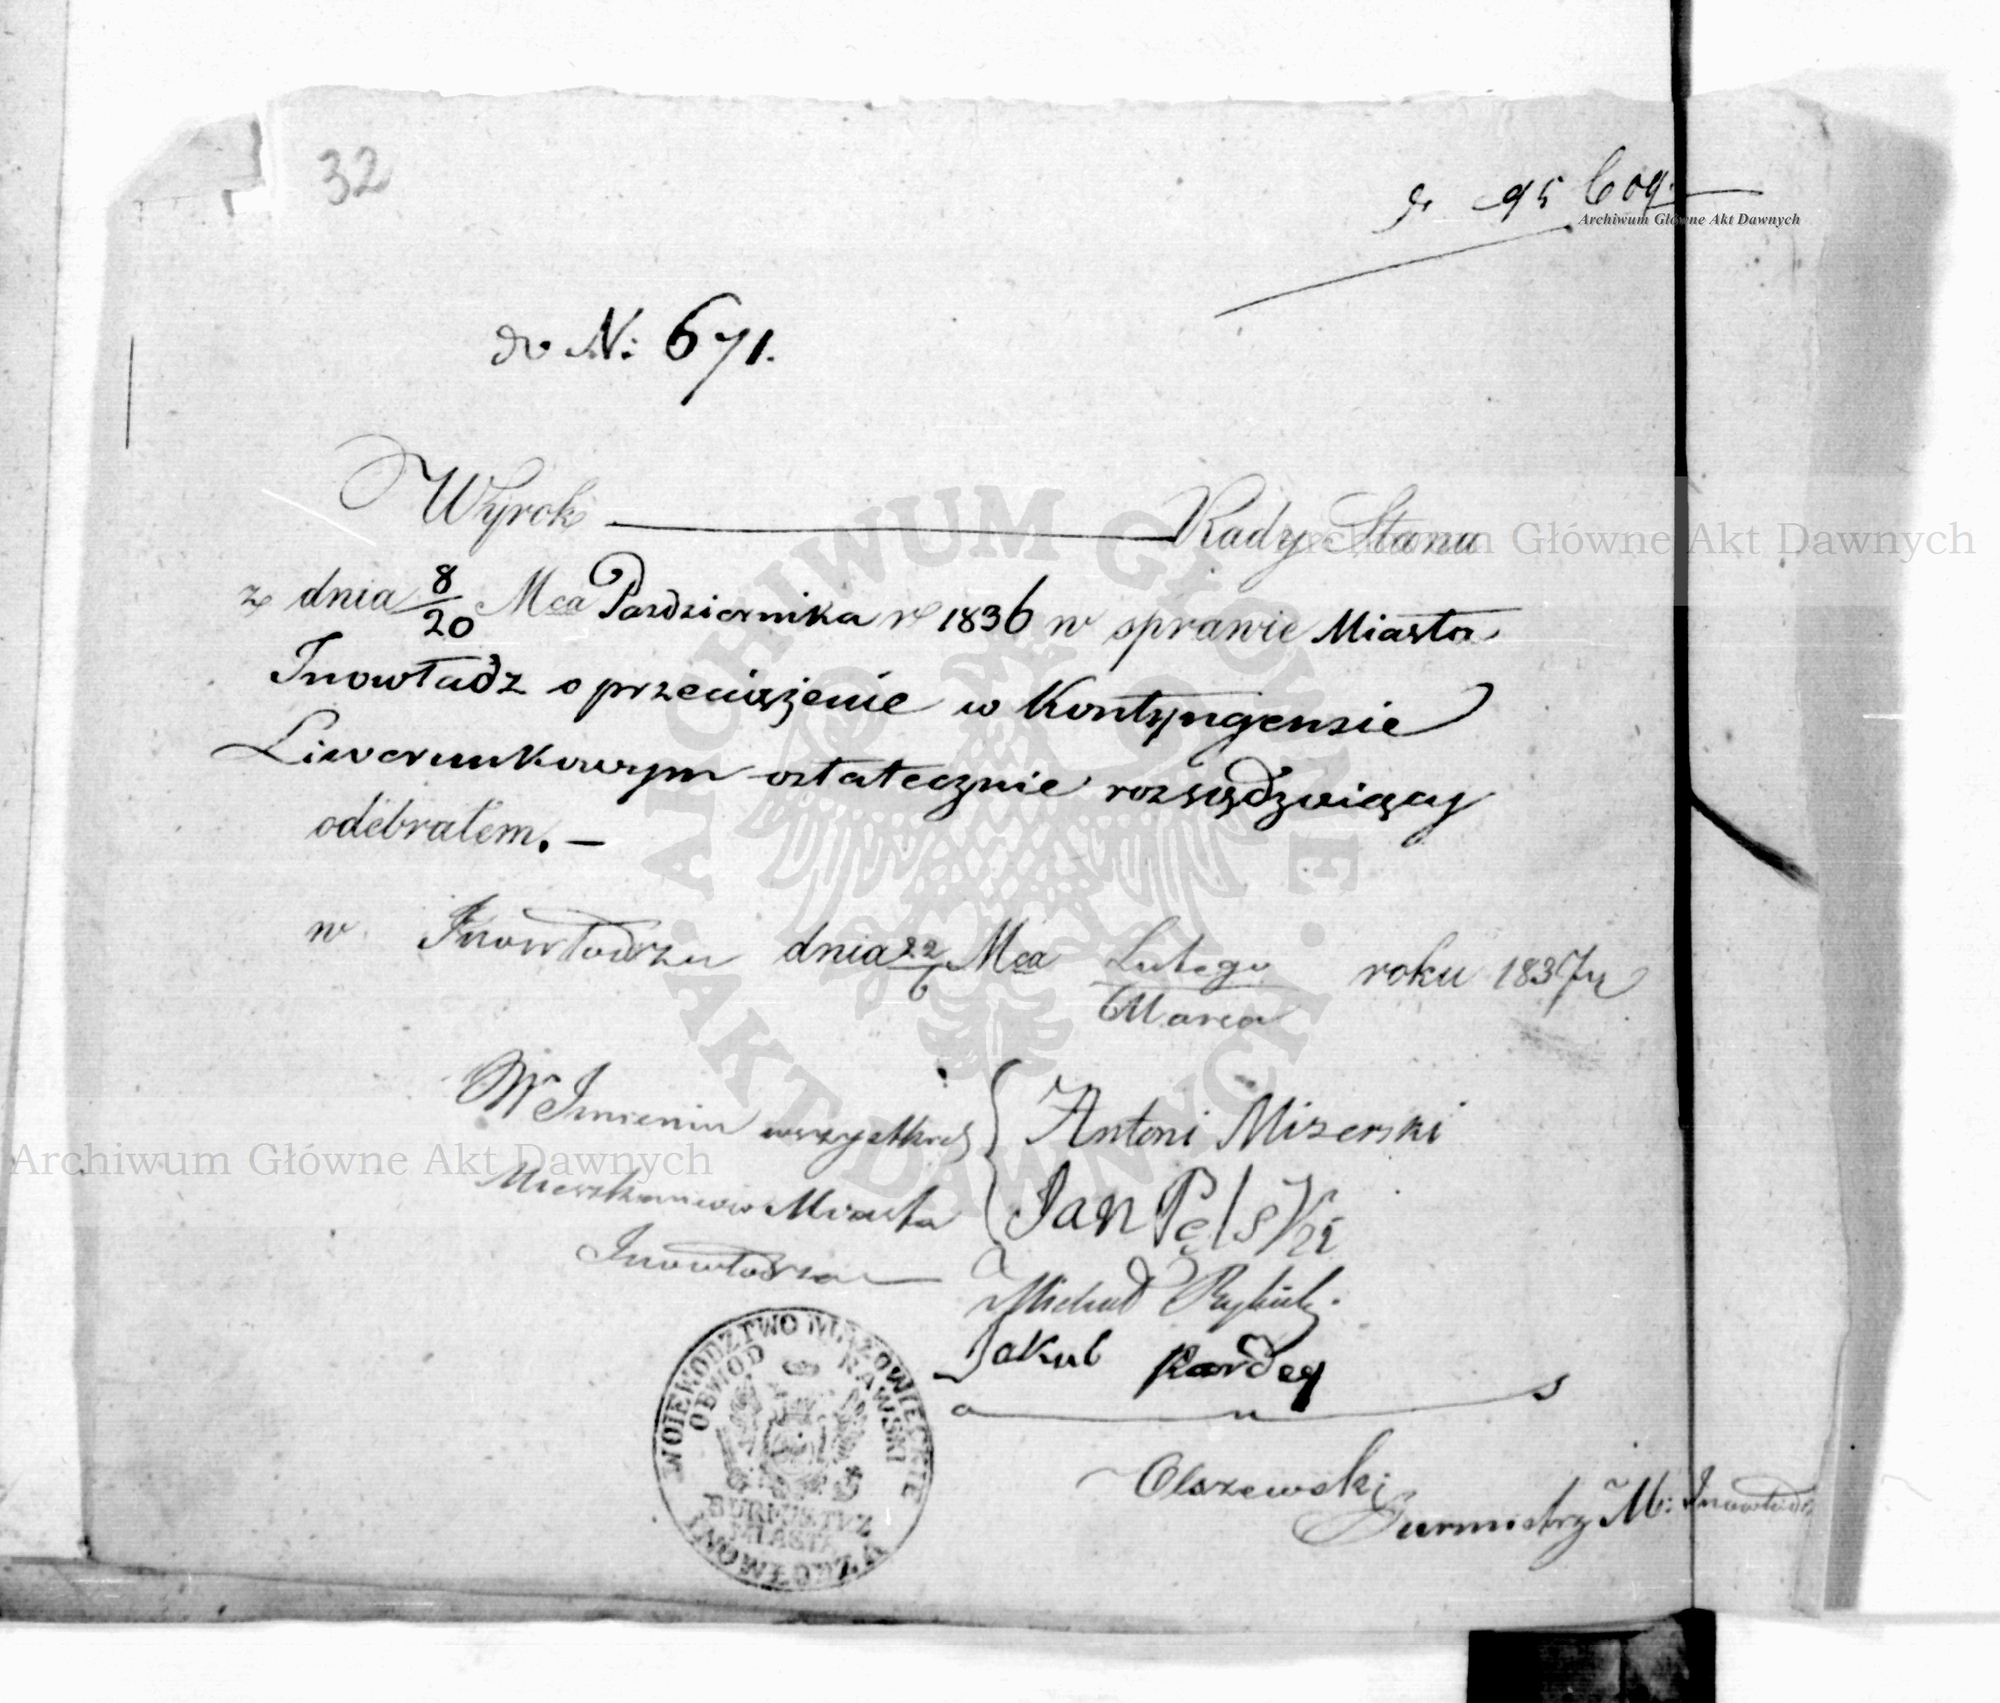 32
95 609
Archiwum Główne Akt Dawnych
do N: 671.
Wyrok Rady Stanu
z dnia 8/20 Mca Pazdziernika r 1836 w sprawie Miasta
Inowładz o przeciążenie w Kontyngensie
Liwerunkowym ostatecznie rozsądzaiący
odebrałem. —
w Inowłodzu dnia 22/6 Mca Lutego/Marca roku 1837
W Imieniu wszystkich
Mieszkańców Miasta
Inowłodza
Antoni Mizerski
Jan
Michał
Jakub
Olszewski
Burmistrz M: Inowłodz
WOIEWODZTWO MAZOWIECKIE
OBWOD RAWSKI
BURMISTRZ
MIASTA
INOWŁODZA
Archiwum Główne Akt Dawnych
Archiwum Główne Akt Dawnych
ARCHIWUM GŁÓWNE AKT DAWNYCH